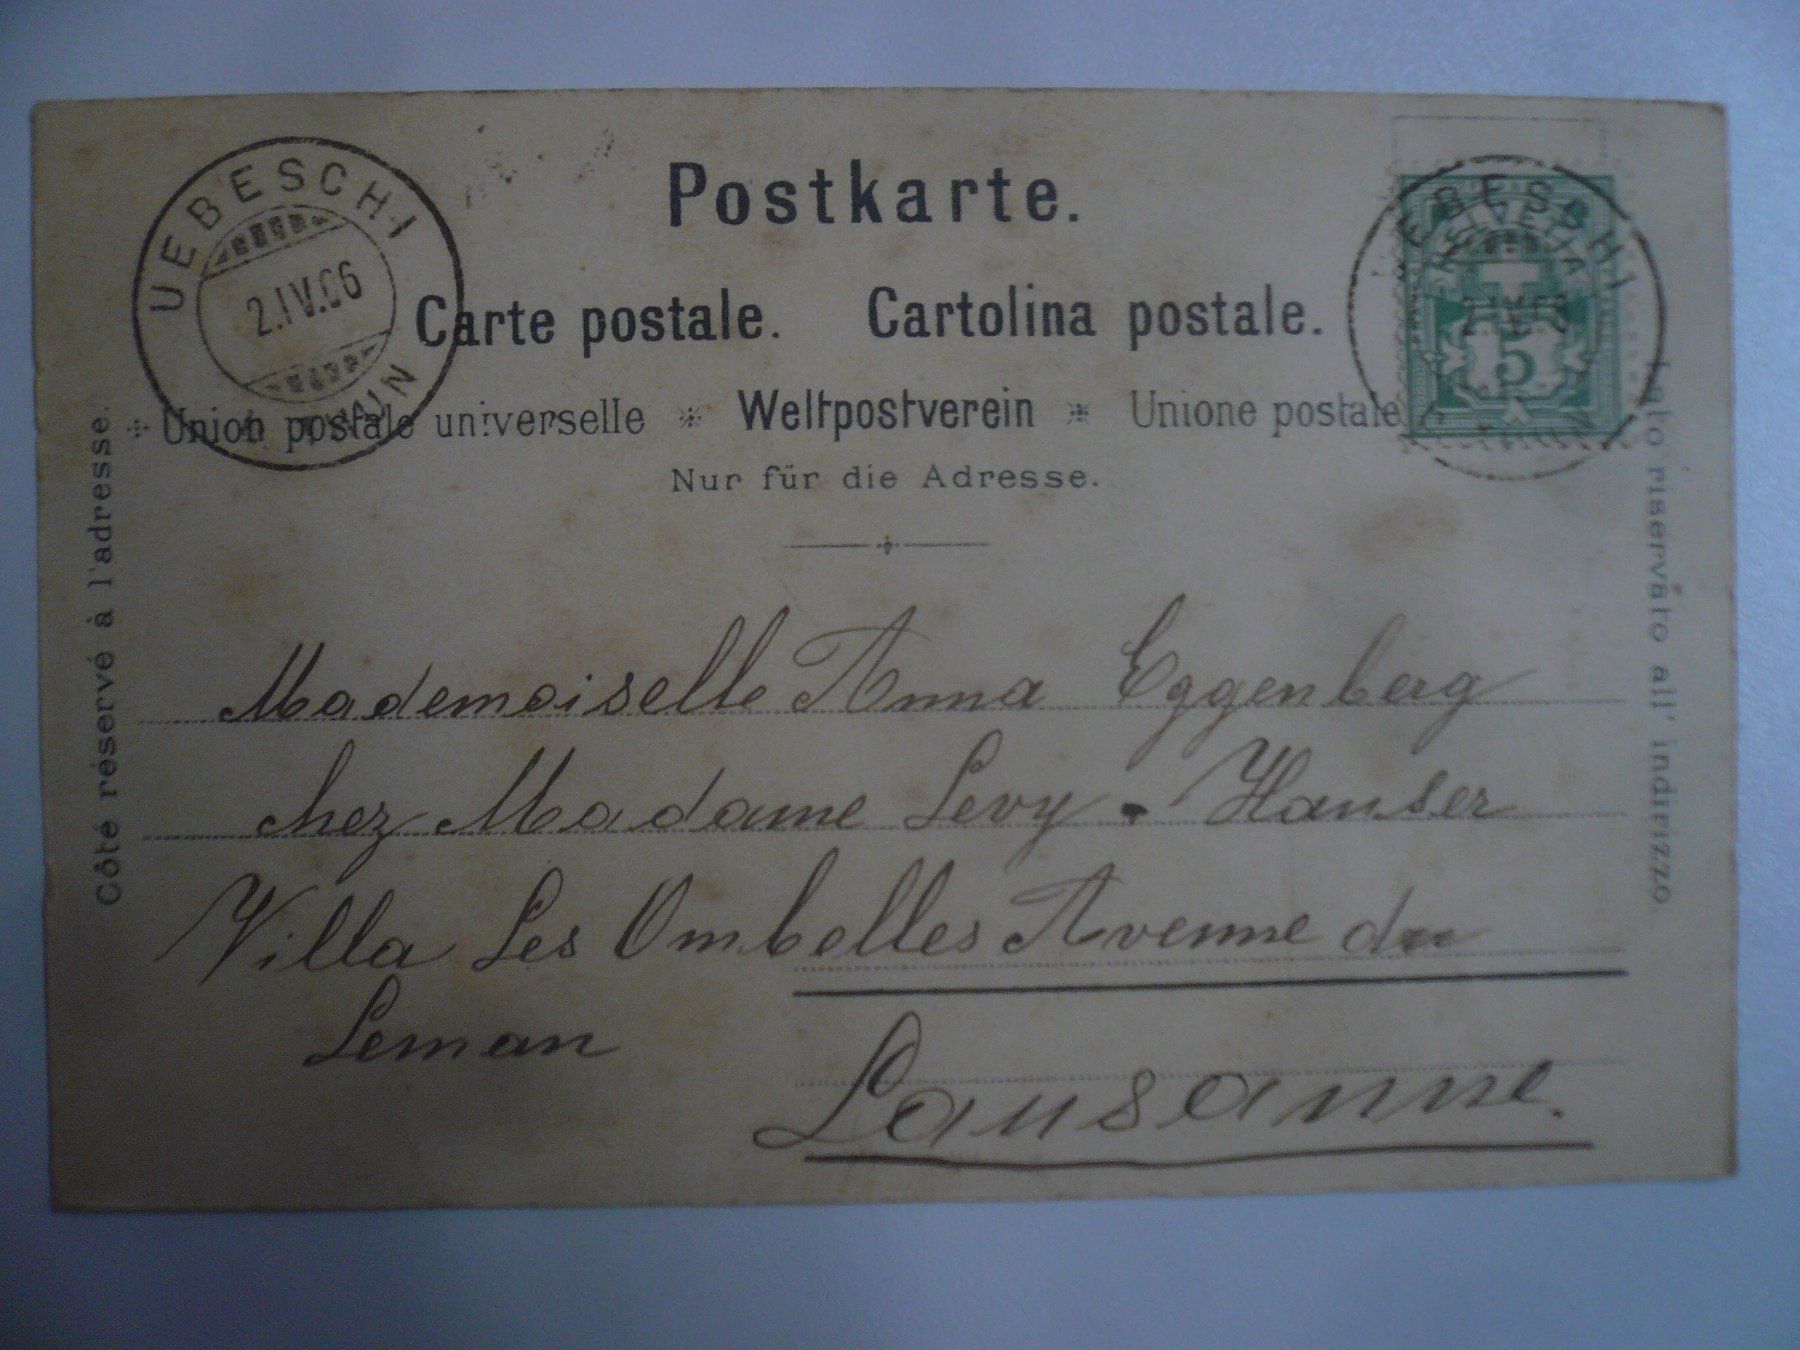 Postkarte.
Carte postale. Cartolina postale.
Union postale universelle Weltpostverein Unione postale
Nur für die Adresse.
Côté réservé à l'adresse.
Lato riservato all' indirizzo
UEBESCHI
2.IV.06
UEBESCHI
HELVETIA
5
Mademoiselle Anna Eggenberg
chez Madame Levy - Hauser
Villa Les Ombelles Avenue du
Leman
Lausanne.